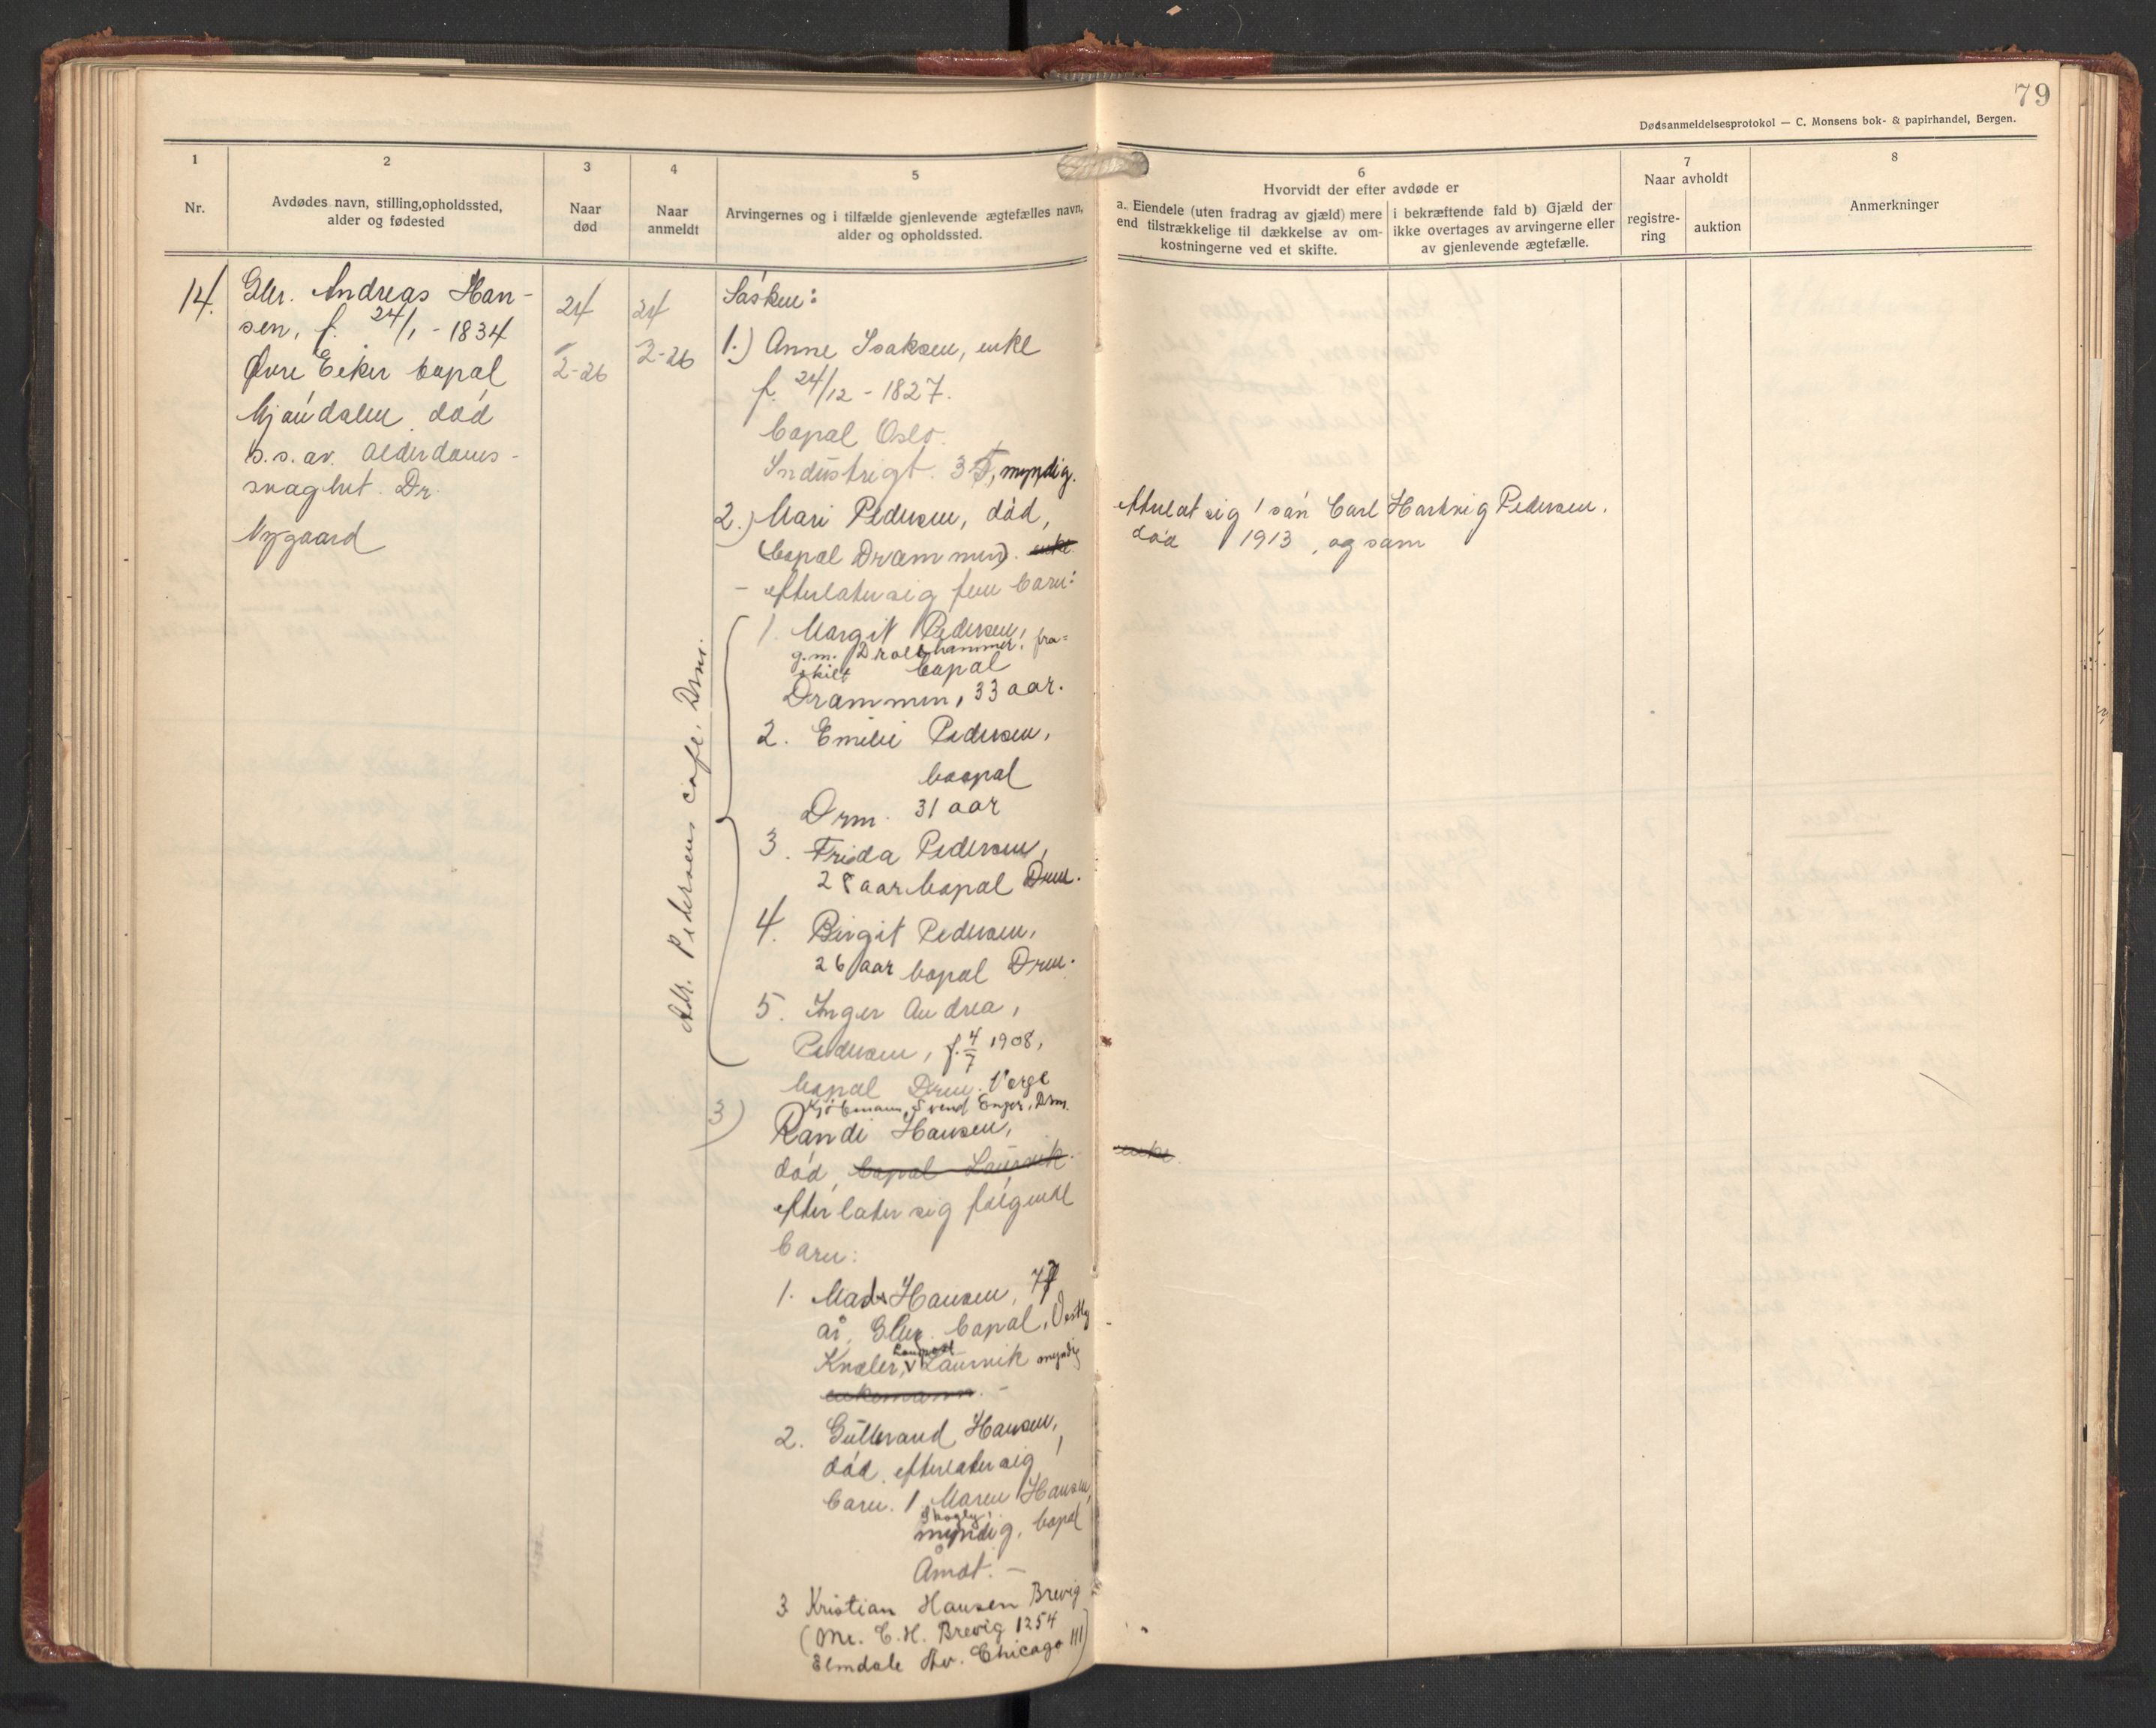 79
Dødsanmeldelsesprotokol — C. Monsens bok- & papirhandel, Bergen.
1
Nr.
2
Avdødes navn, stilling, opholdssted,
alder og fødested
3
Naar
død
4
Naar
anmeldt
5
Arvingernes og i tilfælde gjenlevende ægtefælles navn,
alder og opholdssted.
6
Hvorvidt der efter avdøde er
a. Eiendele (uten fradrag av gjæld) mere
end tilstrækkelige til dækkelse av om-
kostningerne ved et skifte.
i bekræftende fald b) Gjæld der
ikke overtages av arvingerne eller
av gjenlevende ægtefælle.
7
Naar avholdt
registre-
ring
auktion
8
Anmerkninger
14.
Gbr. Andreas Han-
sen, f. 24/1 - 1834
Øvre Eeker bopal
Mjøndalen død
s.s. av. Alderdoms-
svaghet. Dr.
Nygaard
24
2-26
24
2-26
Søsken:
1.) Anne Isaksen, enke
f. 24/12 - 1827.
bopal Oslo.
Industrigt. 35, myndig.
2.) Mari Pedersen, død,
(bopal Drammen). enke
- efterlater sig fem barn:
1. Margit Pedersen,
g.m. Drolshammer, fra-
skilt bopal
Drammen, 33 aar.
2. Emilie Pedersen,
bopal
Drm. 31 aar
3. Frida Pedersen,
28 aar bopal Drm.
4. Birgit Pedersen,
26 aar bopal Drm.
5. Inger Andrea,
Pedersen, f. 4/7 1908,
bopal Drm. Verge
Kjøbmann, Svend Enger, Drm.
Adr. Pedersens café. Drm.
3) Randi Hansen,
død, bopal Laurvik.
enke.
efterlater sig følgende
barn:
1. Mads Hansen, 77
år, Gbr. bopal, Vestby
Knoler, Laurvik myndig
enkemann. -
2. Gulbrand Hansen,
død, efterlater sig 1
barn. 1 Maren Hansen,
Skogly,
myndig, bopal
Åmot. -
3 Kristian Hansen Brevig
(Mr. C. H. Brevig 1254
Elmdale Av. Chicago Ill)
efterlot sig 1 søn Carl Hartvig Pedersen.
død 1913, og som